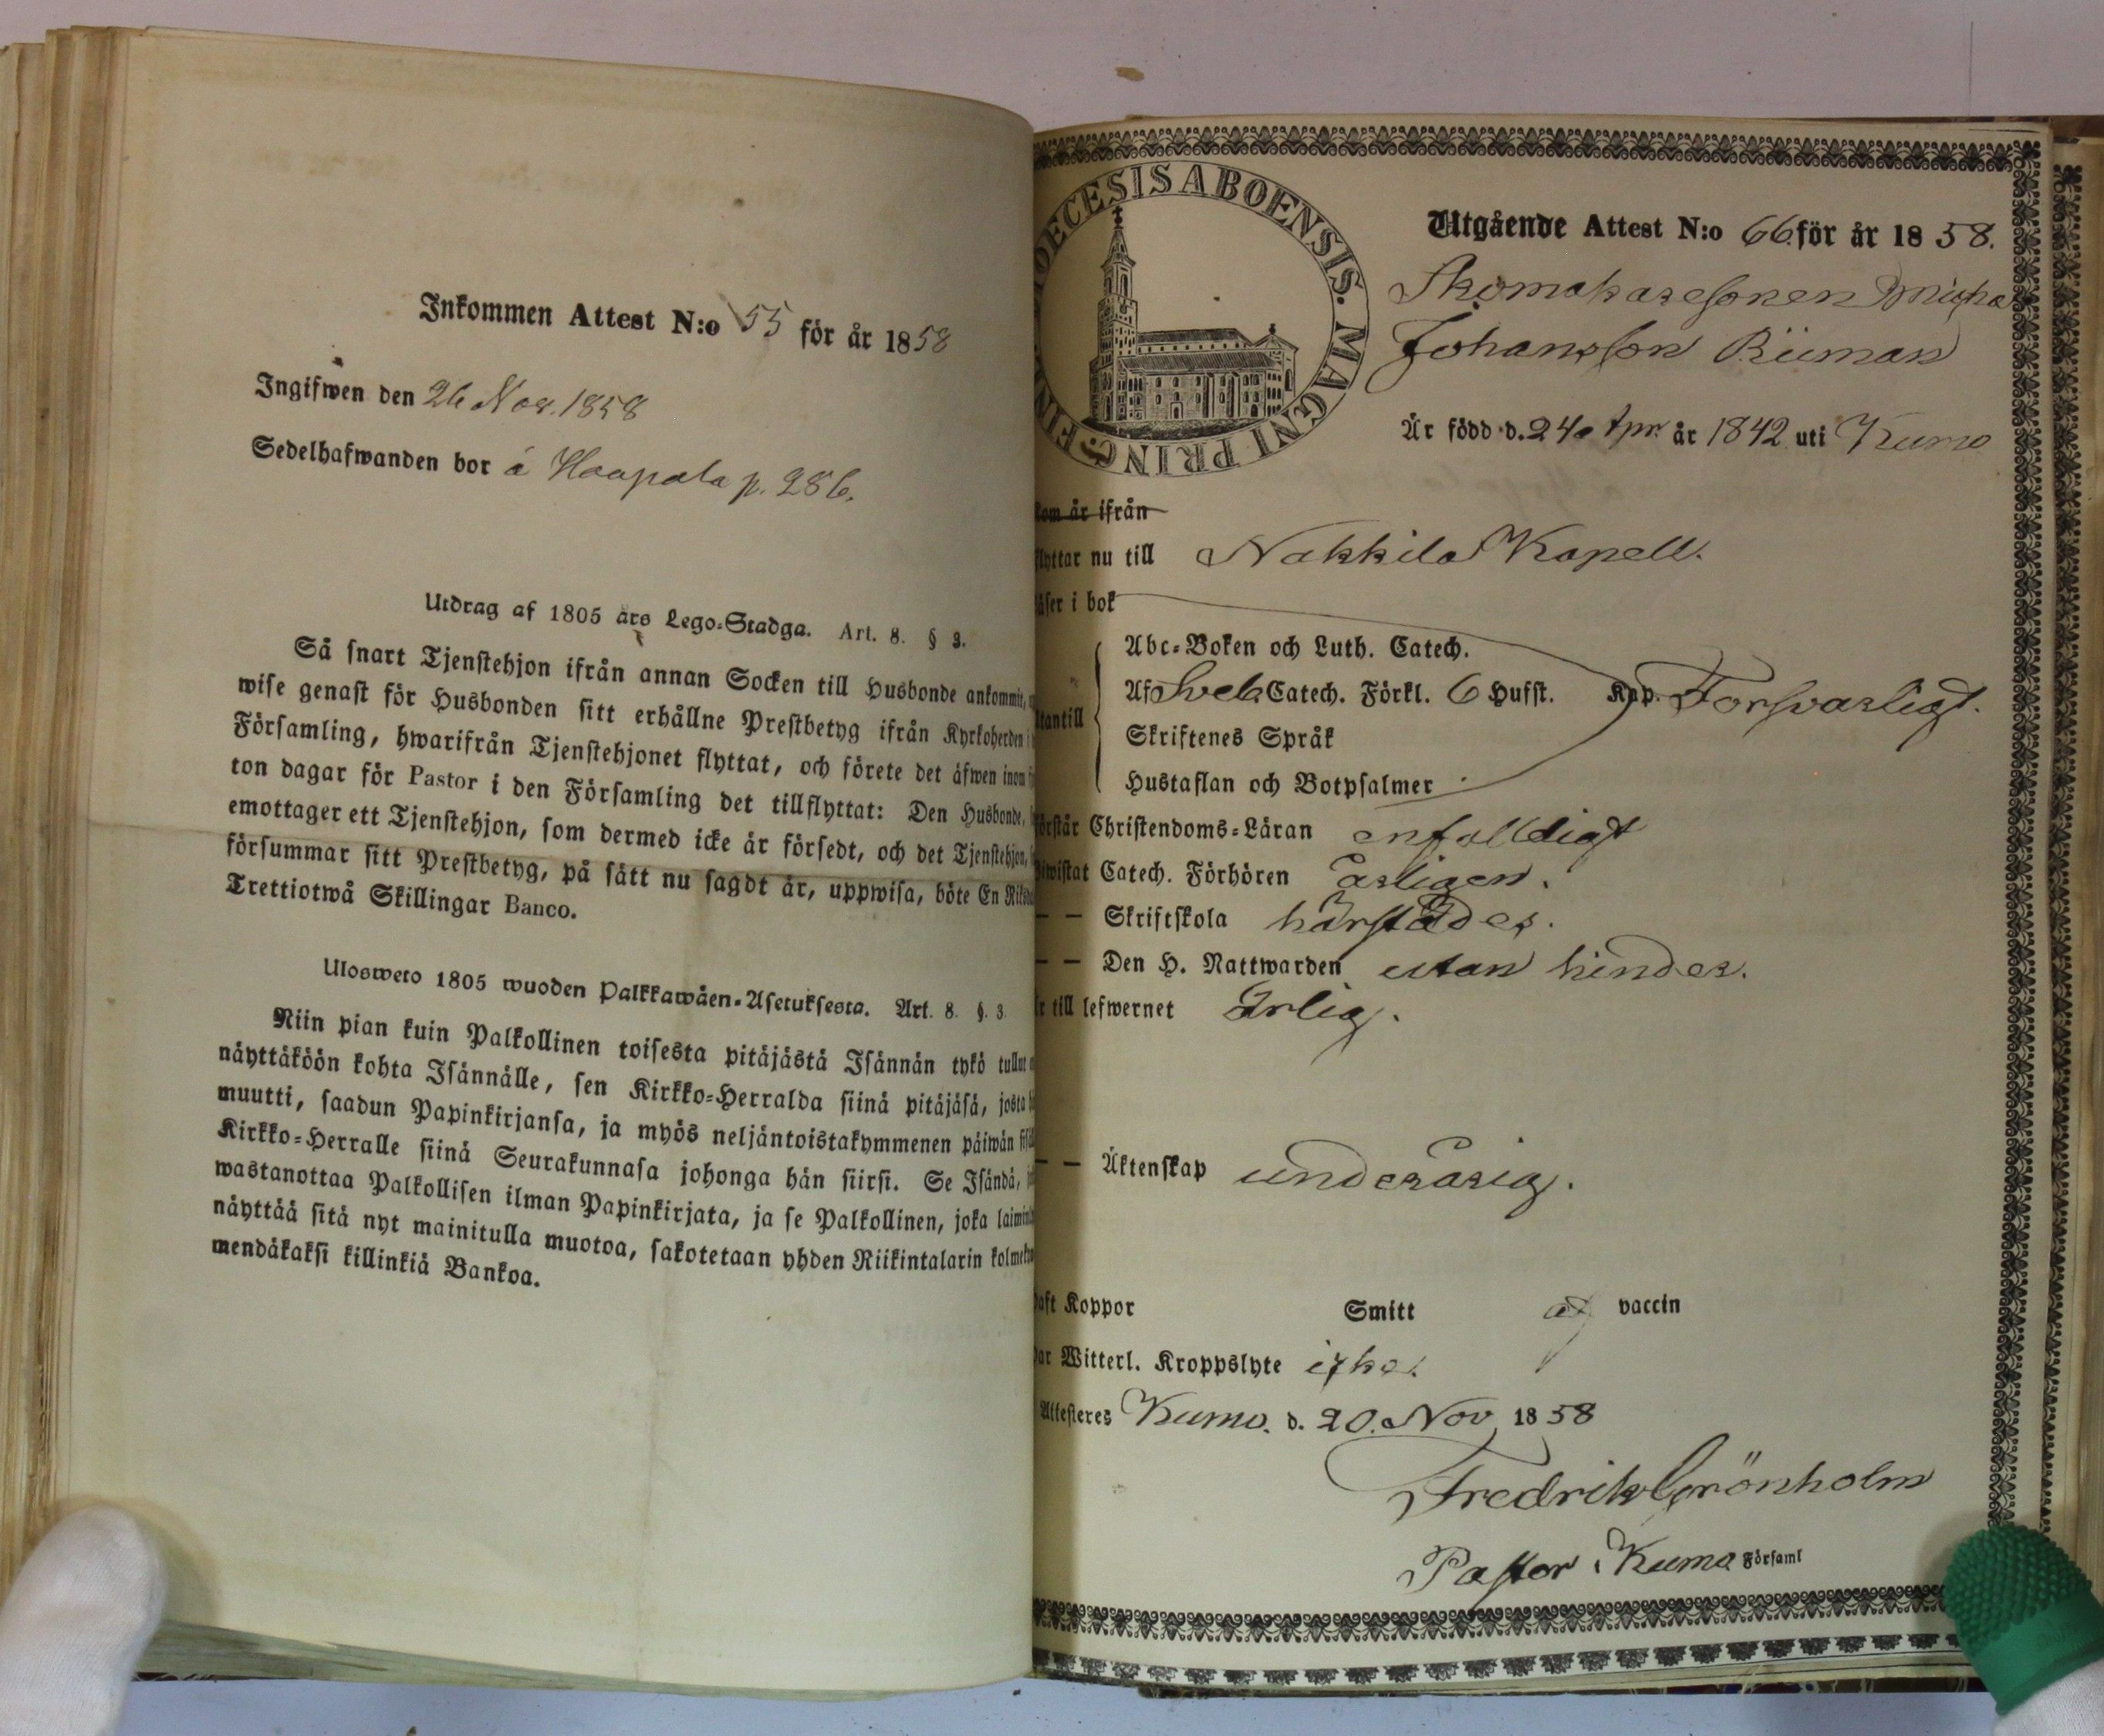 Inkommen Attest N:o 55 för år 1858
Ingifwen den 26 Nov. 1858
Sedelhafwanden bor å Haapala p. 286.
Utdrag af 1805 års Lego-Stadga. Art. 8. § 3.
Så snart Tjenstehjon ifrån annan Socken till Husbonde ankommit,
wise genast för Husbonden sitt erhållne Prestbetyg ifrån Kyrkoherden
Församling, hwarifrån Tjenstehjonet flyttat, och förete det äfwen inom
ton dagar för Pastor i den Församling det tillflyttat: Den Husbonde,
emottager ett Tjenstehjon, som dermed icke är försedt, och det Tjenstehjon,
försummar sitt Prestbetyg, på sätt nu sagdt är, uppwisa, böte En
Trettiotwå Skillingar Banco.
Ulosweto 1805 wuoden Palkkawäen-Asetuksesta. Art. 8. §. 3.
Niin pian kuin Palkollinen toisesta pitäjästä Isännän tykö tullut
näyttäköön kohta Isännälle, sen Kirkko-Herralda siinä pitäjäsä, josta
muutti, saadun Papinkirjansa, ja myös neljäntoistakymmenen päiwän
Kirkko-Herralle siinä Seurakunnasa johonga hän siirsi. Se Isändä,
wastanottaa Palkollisen ilman Papinkirjata, ja se Palkollinen, joka
näyttää sitä nyt mainitulla muotoa, sakotetaan yhden Riikintalarin
mendäkaksi killinkiä Bankoa.
DIOECESIS ABOENSIS. MAGNI PRINC. FINL
Utgående Attest N:o 66 för år 1858.
Skomakaresonen Micha
Johansson Riiman
Är född d. 24 Apr. år 1842 uti Kumo
kom år ifrån
flyttar nu till Nakkila Kapell.
läser i bok
Abc-Boken och Luth. Catech.
Utantill Af Sveb. Catech. Förkl. 6 Hufst. Kap. Forsvarligt.
Skriftenes Språk
Hustaflan och Botpsalmer
förstår Christendoms-Läran enfalldigt
Biwistat Catech. Förhören årligen.
— — Skriftskola härstädes.
— — Den H. Nattwarden utan hinder.
Är till lefwernet Ärlig.
— — Äktenskap underårig.
Haft Koppor Smitt af vaccin
Har Witterl. Kroppslyte icke.
Attesteres Kumo. d. 20. Nov 1858
Fredrik Grönholm
Pastor i Kumo Församl